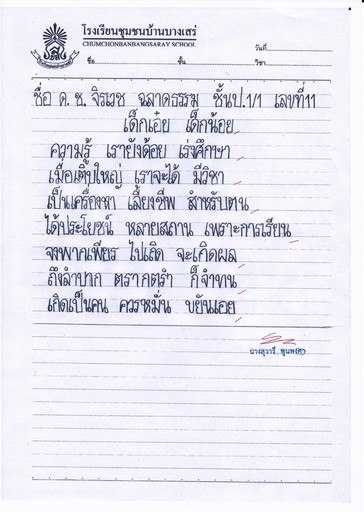 โรงเรียนชุมชนบ้านบางเสร่
CHUMCHONBANBANGSARAY SCHOOL
วันที่
ชื่อ ชั้น วิชา
ชื่อ ด.ช. จิรเวช ฉลาดธรรม ชั้นป.1/1 เลขที่11
เด็กเอ๋ย เด็กน้อย
ความรู้ เรายังด้อย เร่งศึกษา
เมื่อเติบใหญ่ เราจะได้ มีวิชา
เป็นเครื่องหา เลี้ยงชีพ สำหรับตน
ได้ประโยชน์ หลายสถาน เพราะการเรียน
จงพากเพียร ไปเถิด จะเกิดผล
ถึงลำบาก ตรากตรำ ก็จำทน
เกิดเป็นคน ควรหมั่น ขยันเอย
นางสุวารี